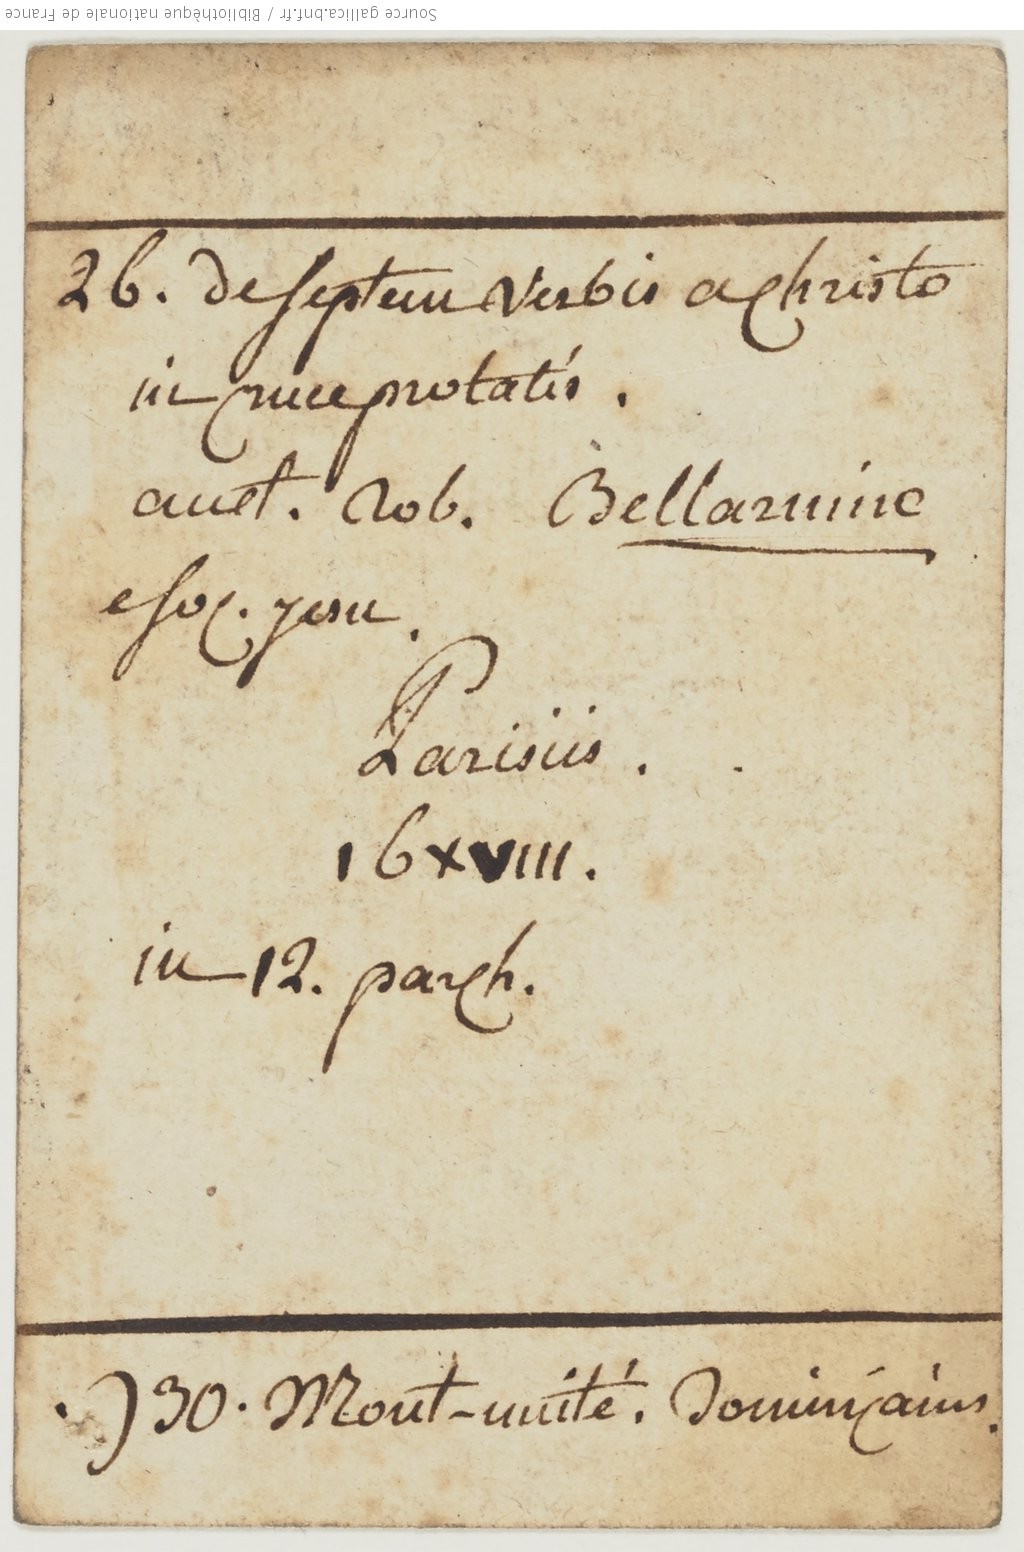 Source gallica.bnf.fr / Bibliothèque nationale de France
26. de septem verbis a christo
in cruce prolatis.
auct. Rob. Bellarmine
e soc. jesu.
Parisiis.
16xviii.
in-12. parch.
.) 30. Mont-unité. Dominicains.